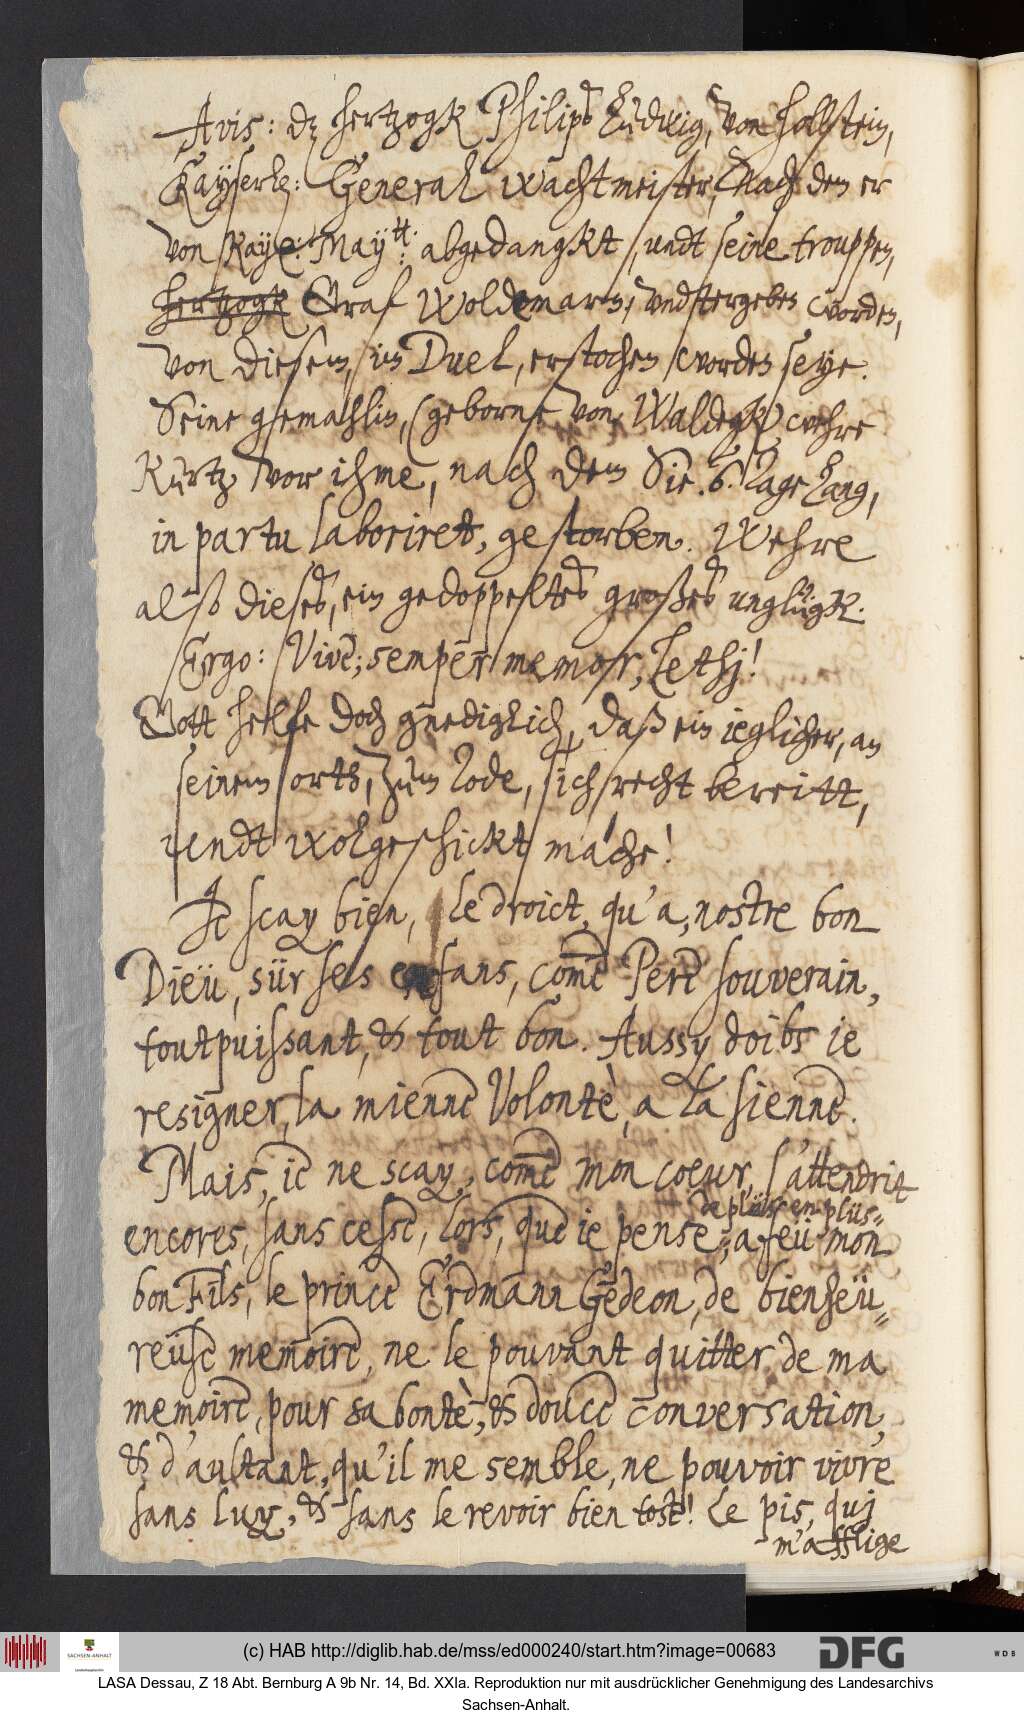 Avis: dz hertzogk Philips Ludwig, von hollstein,
Kayserl: General wachtmeister, Nach dem er
von Kay: May:tt abgedangkt, undt seine trouppen,
hertzogk Graf Woldemarn, undtergeben worden,
von diesem, im Duel, erstochen worden seye.
Seine gemahlin, (geborne von Waldegk) wehre
kurtz vor ihme, nach dem Sie .6. Tage lang,
in partu laboriret, gestorben. Wehre
also dieses, ein gedoppeltes großes unglügk.
Ergo: Vive; semper memor, Lethj!
Gott helfe doch gnediglich, daß ein ieglicher, an
seinem orth, zum Tode, sich recht bereitt,
undt wolgeschickt mache!
Je scay bien, le droict, qu'a, nostre bon
Dieü, sür ses enfans, come Pere souverain,
toutpuissant, & tout bon. Aussy doibs ie
resigner, la mienne Volontè, a la sienne.
Mais, ie ne scay, come mon coeur, s'attendrit
de plüs en plüs=
encores, sans cesse, lors, que ie pense, a feü mon
bon Fils, le prince Erdmann Gedeon, de bienheü=
reüse memoire, ne le pouvant quitter de ma
memoire, pour sa bontè, & douce conversation,
& d'aultant, qu'il me semble, ne pouvoir vivre
sans luy, & sans le revoir bien tost! Le pis, quj
m'afflige
(c) HAB http://diglib.hab.de/mss/ed000240/start.htm?image=00683
SACHSEN-ANHALT
DFG
WDB
LASA Dessau, Z 18 Abt. Bernburg A 9b Nr. 14, Bd. XXIa. Reproduktion nur mit ausdrücklicher Genehmigung des Landesarchivs
Sachsen-Anhalt.